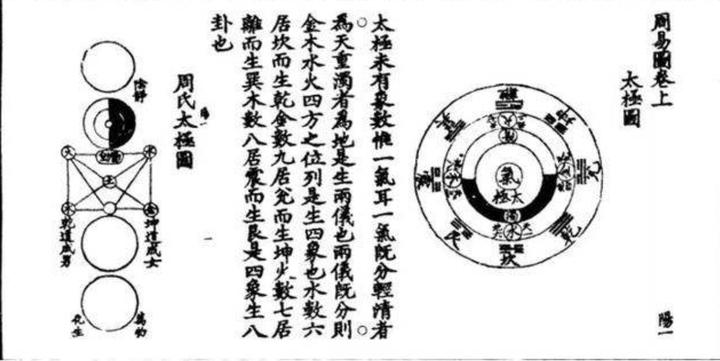 周易圖卷上
太極圖
陽一
離
坤
兌
乾
坎
艮
震
巽
氣
太極
水
太極未有象數惟一氣耳一氣既分輕清者
為天重濁者為地是生兩儀也兩儀既分則
金木水火四方之位列是生四象也水數六
居坎而生乾金數九居兌而生坤火數七居
離而生巽木數八居震而生艮是四象生八
卦也
周氏太極圖
陰靜
火
水
土
木
金
坤道成女
乾道成男
萬物
化生